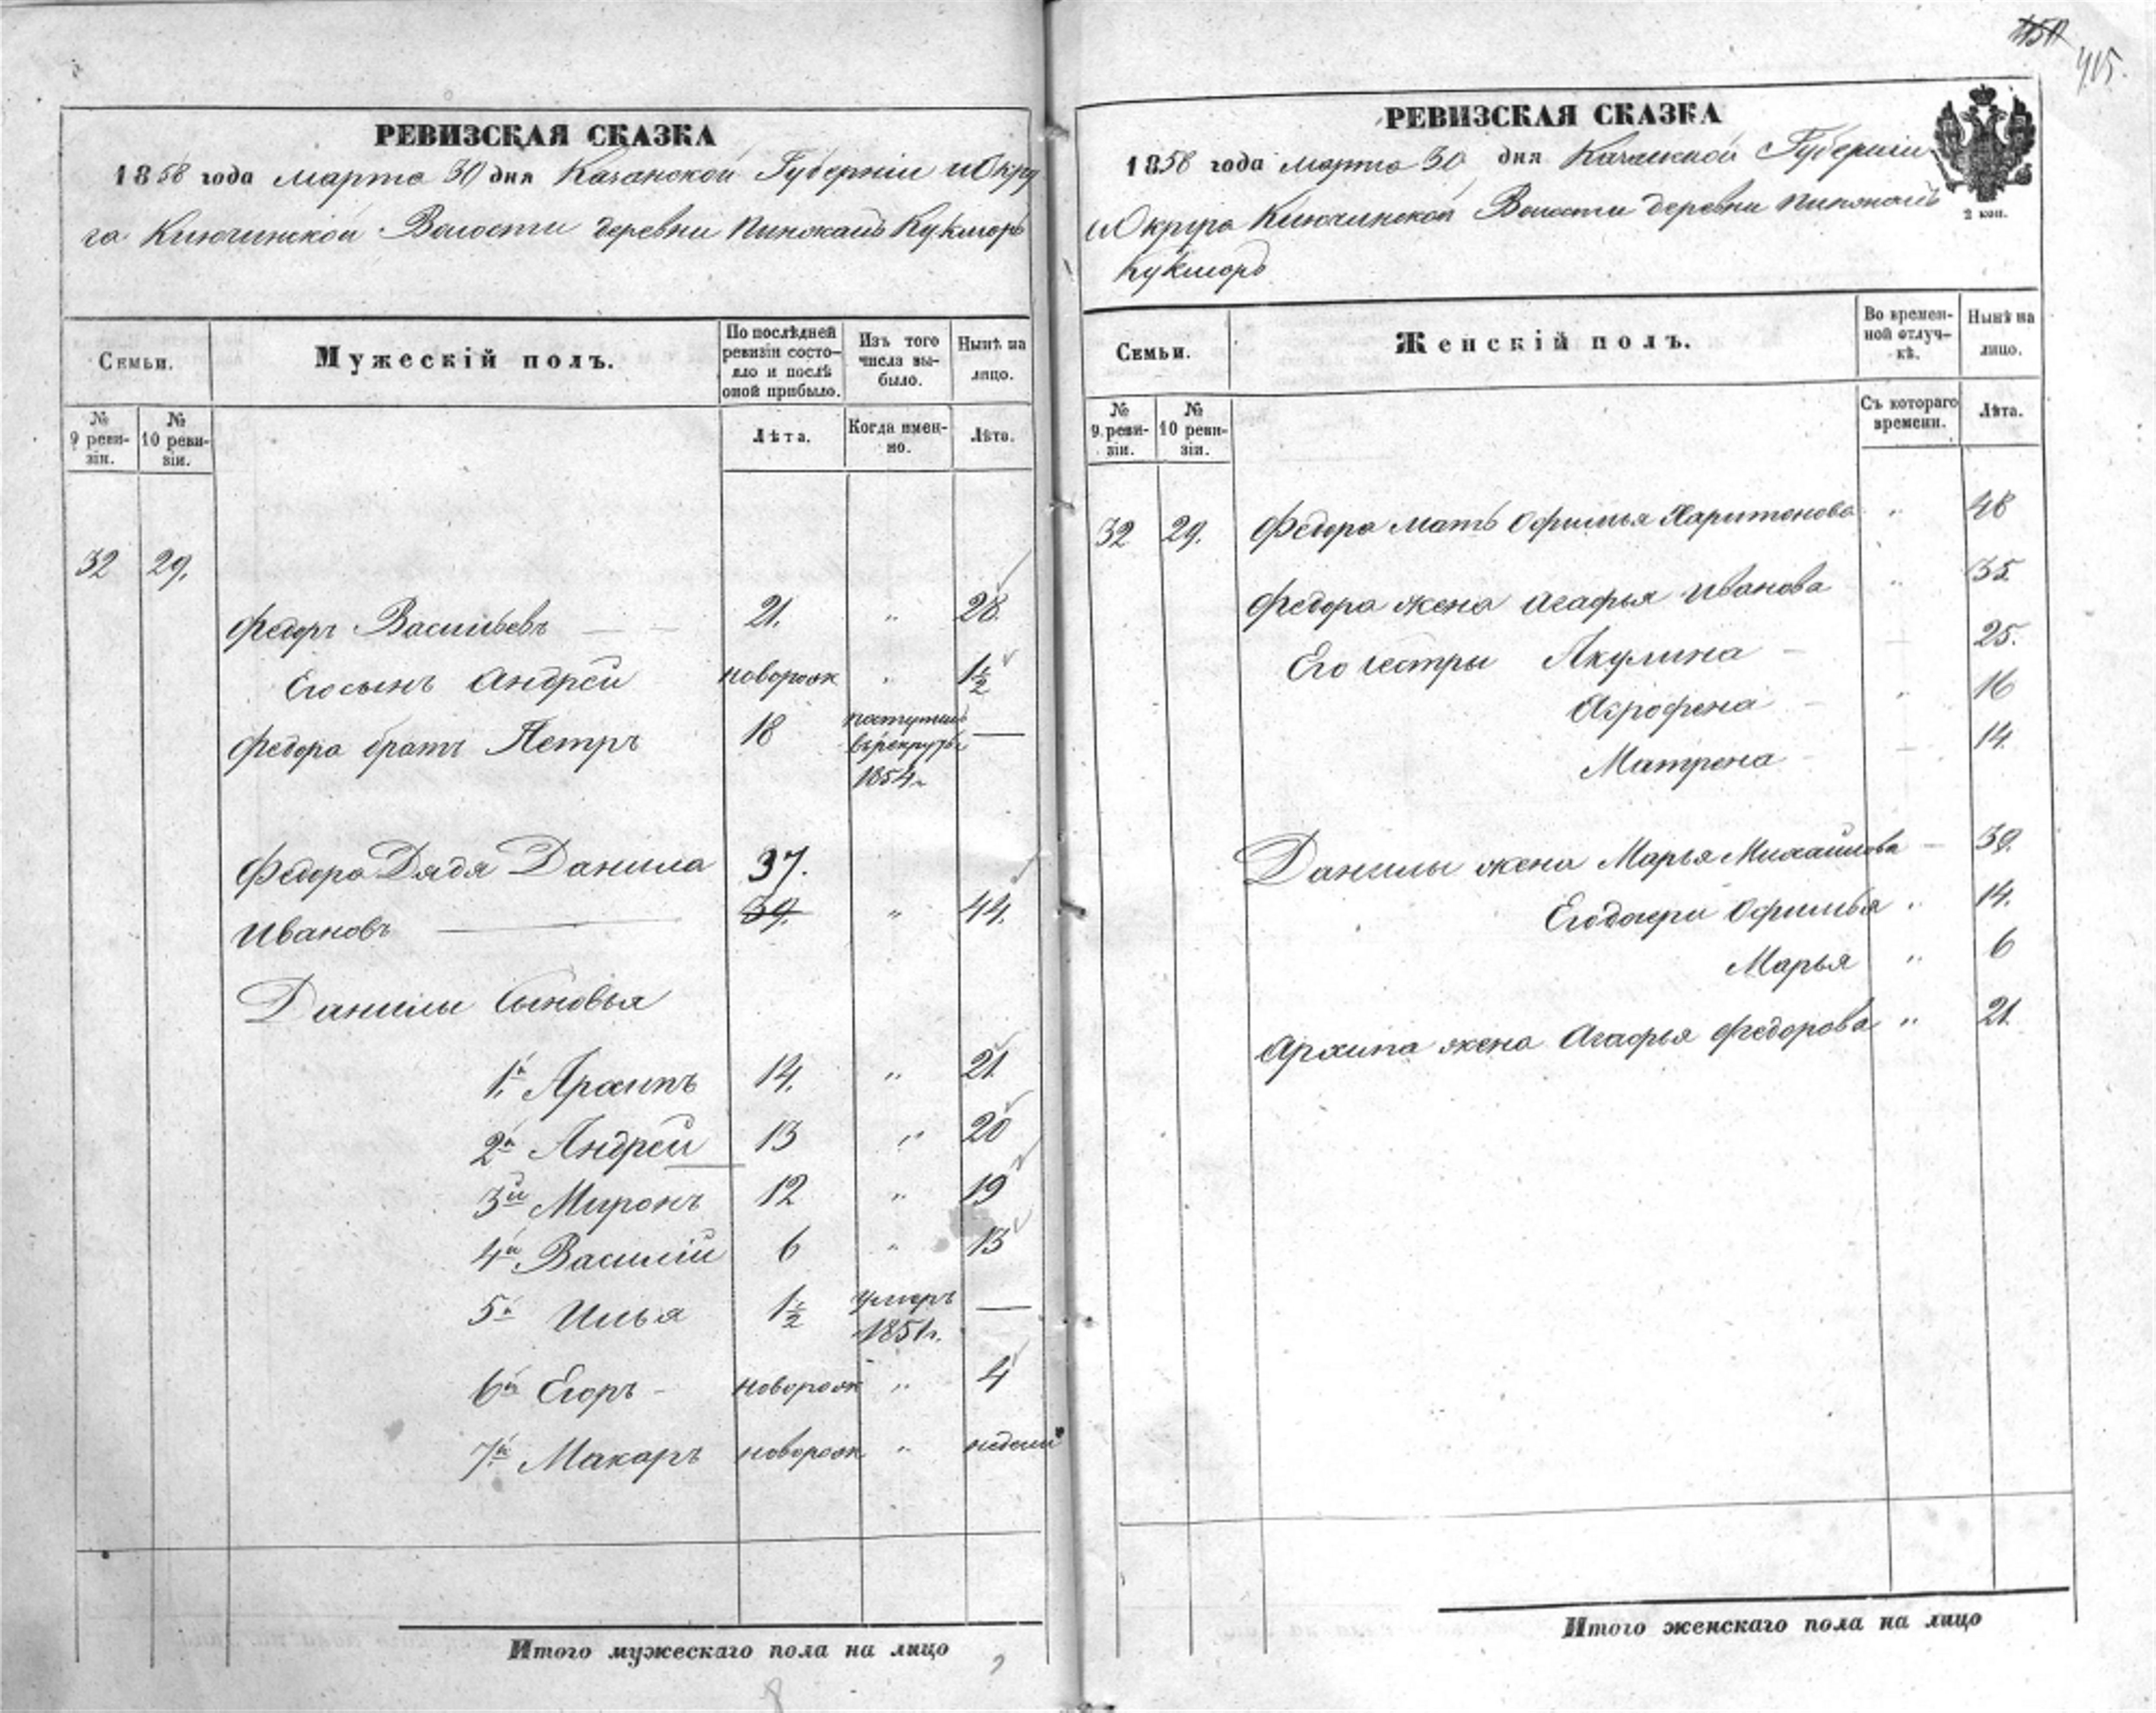 450
415.
РЕВИЗСКАЯ СКАЗКА
1858 года марта 30 дня Казанской Губерніи и Окру
га Ключинской Волости деревни Кукморъ
Семьи.
Мужескій полъ.
По послѣдней ревизіи состояло и послѣ оной прибыло.
Изъ того числа выбыло.
Нынѣ на лицо.
№ 9 ревизіи.
№ 10 ревизіи.
Лѣта.
Когда именно.
Лѣта.
32 29.
Федоръ Васильевъ 21. " 28.
Его сынъ Андрей новорож " 1½
Федора братъ Петръ 18 поступилъ въ рекруты 1854 г. —
Федора Дядя Данила 37.
Ивановъ 39. " 44.
Данилы Сыновья
1й Архипъ 14. " 21.
2й Андрей 13 " 20
3й Миронъ 12 " 19
4й Василій 6 " 13
5й Илья 1½ умеръ 1851 г. —
6й Егоръ - новорож " 4
7й Макаръ новорож " недели
Итого мужескаго пола на лицо
РЕВИЗСКАЯ СКАЗКА
1858 года марта 30 дня Казанской Губерніи
и Округа Ключинской Волости деревни
Кукморъ
2 коп.
Семьи.
Женскій полъ.
Во временной отлучкѣ.
Нынѣ на лицо.
№ 9 ревизіи.
№ 10 ревизіи.
Съ котораго времени.
Лѣта.
32 29. Федора мать Офимья Харитонова " 48
Федора жена Агафья Иванова " 35.
Его сестры Акулина - 25.
Агрофена " 16
Матрена - 14.
Данилы жена Марья Михайлова - 39.
Его дочери Офимья " 14.
Марья " 6
Архипа жена Агафья Федорова " 21.
Итого женскаго пола на лицо